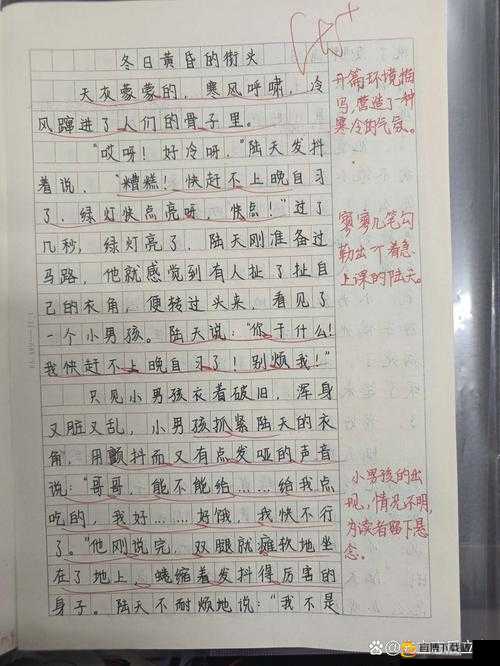 冬日黄昏的街头
天灰蒙蒙的，寒风呼啸，冷
风蹿进了人们的骨子里。
“哎呀！好冷呀，”陆天发抖
着说，“糟糕！快赶不上晚自习
了，绿灯快点亮呀，快点！”过了
几秒，绿灯亮了，陆天刚准备过
马路，他就感觉到有人扯了扯自
己的衣角，便转过头来，看见了
一个小男孩。陆天说：“你干什么！
我快赶不上晚自习了！别烦我！”
只见小男孩衣着破旧，浑身
又脏又乱，小男孩抓紧陆天的衣
角，用颤抖而又有点发哑的声音
说：“哥哥，能不能给……给我点
吃的，我好……好饿，我快不行
了。”他刚说完，双腿就瘫软地坐
在了地上，蜷缩着发抖得厉害的
身子。陆天不耐烦地说：“我不是
开篇环境描
写，营造了一种
寒冷的气氛。
寥寥几笔勾
勒出一个着急
上课的陆天。
小男孩的出
现，情况不明，
为读者留下悬
念。